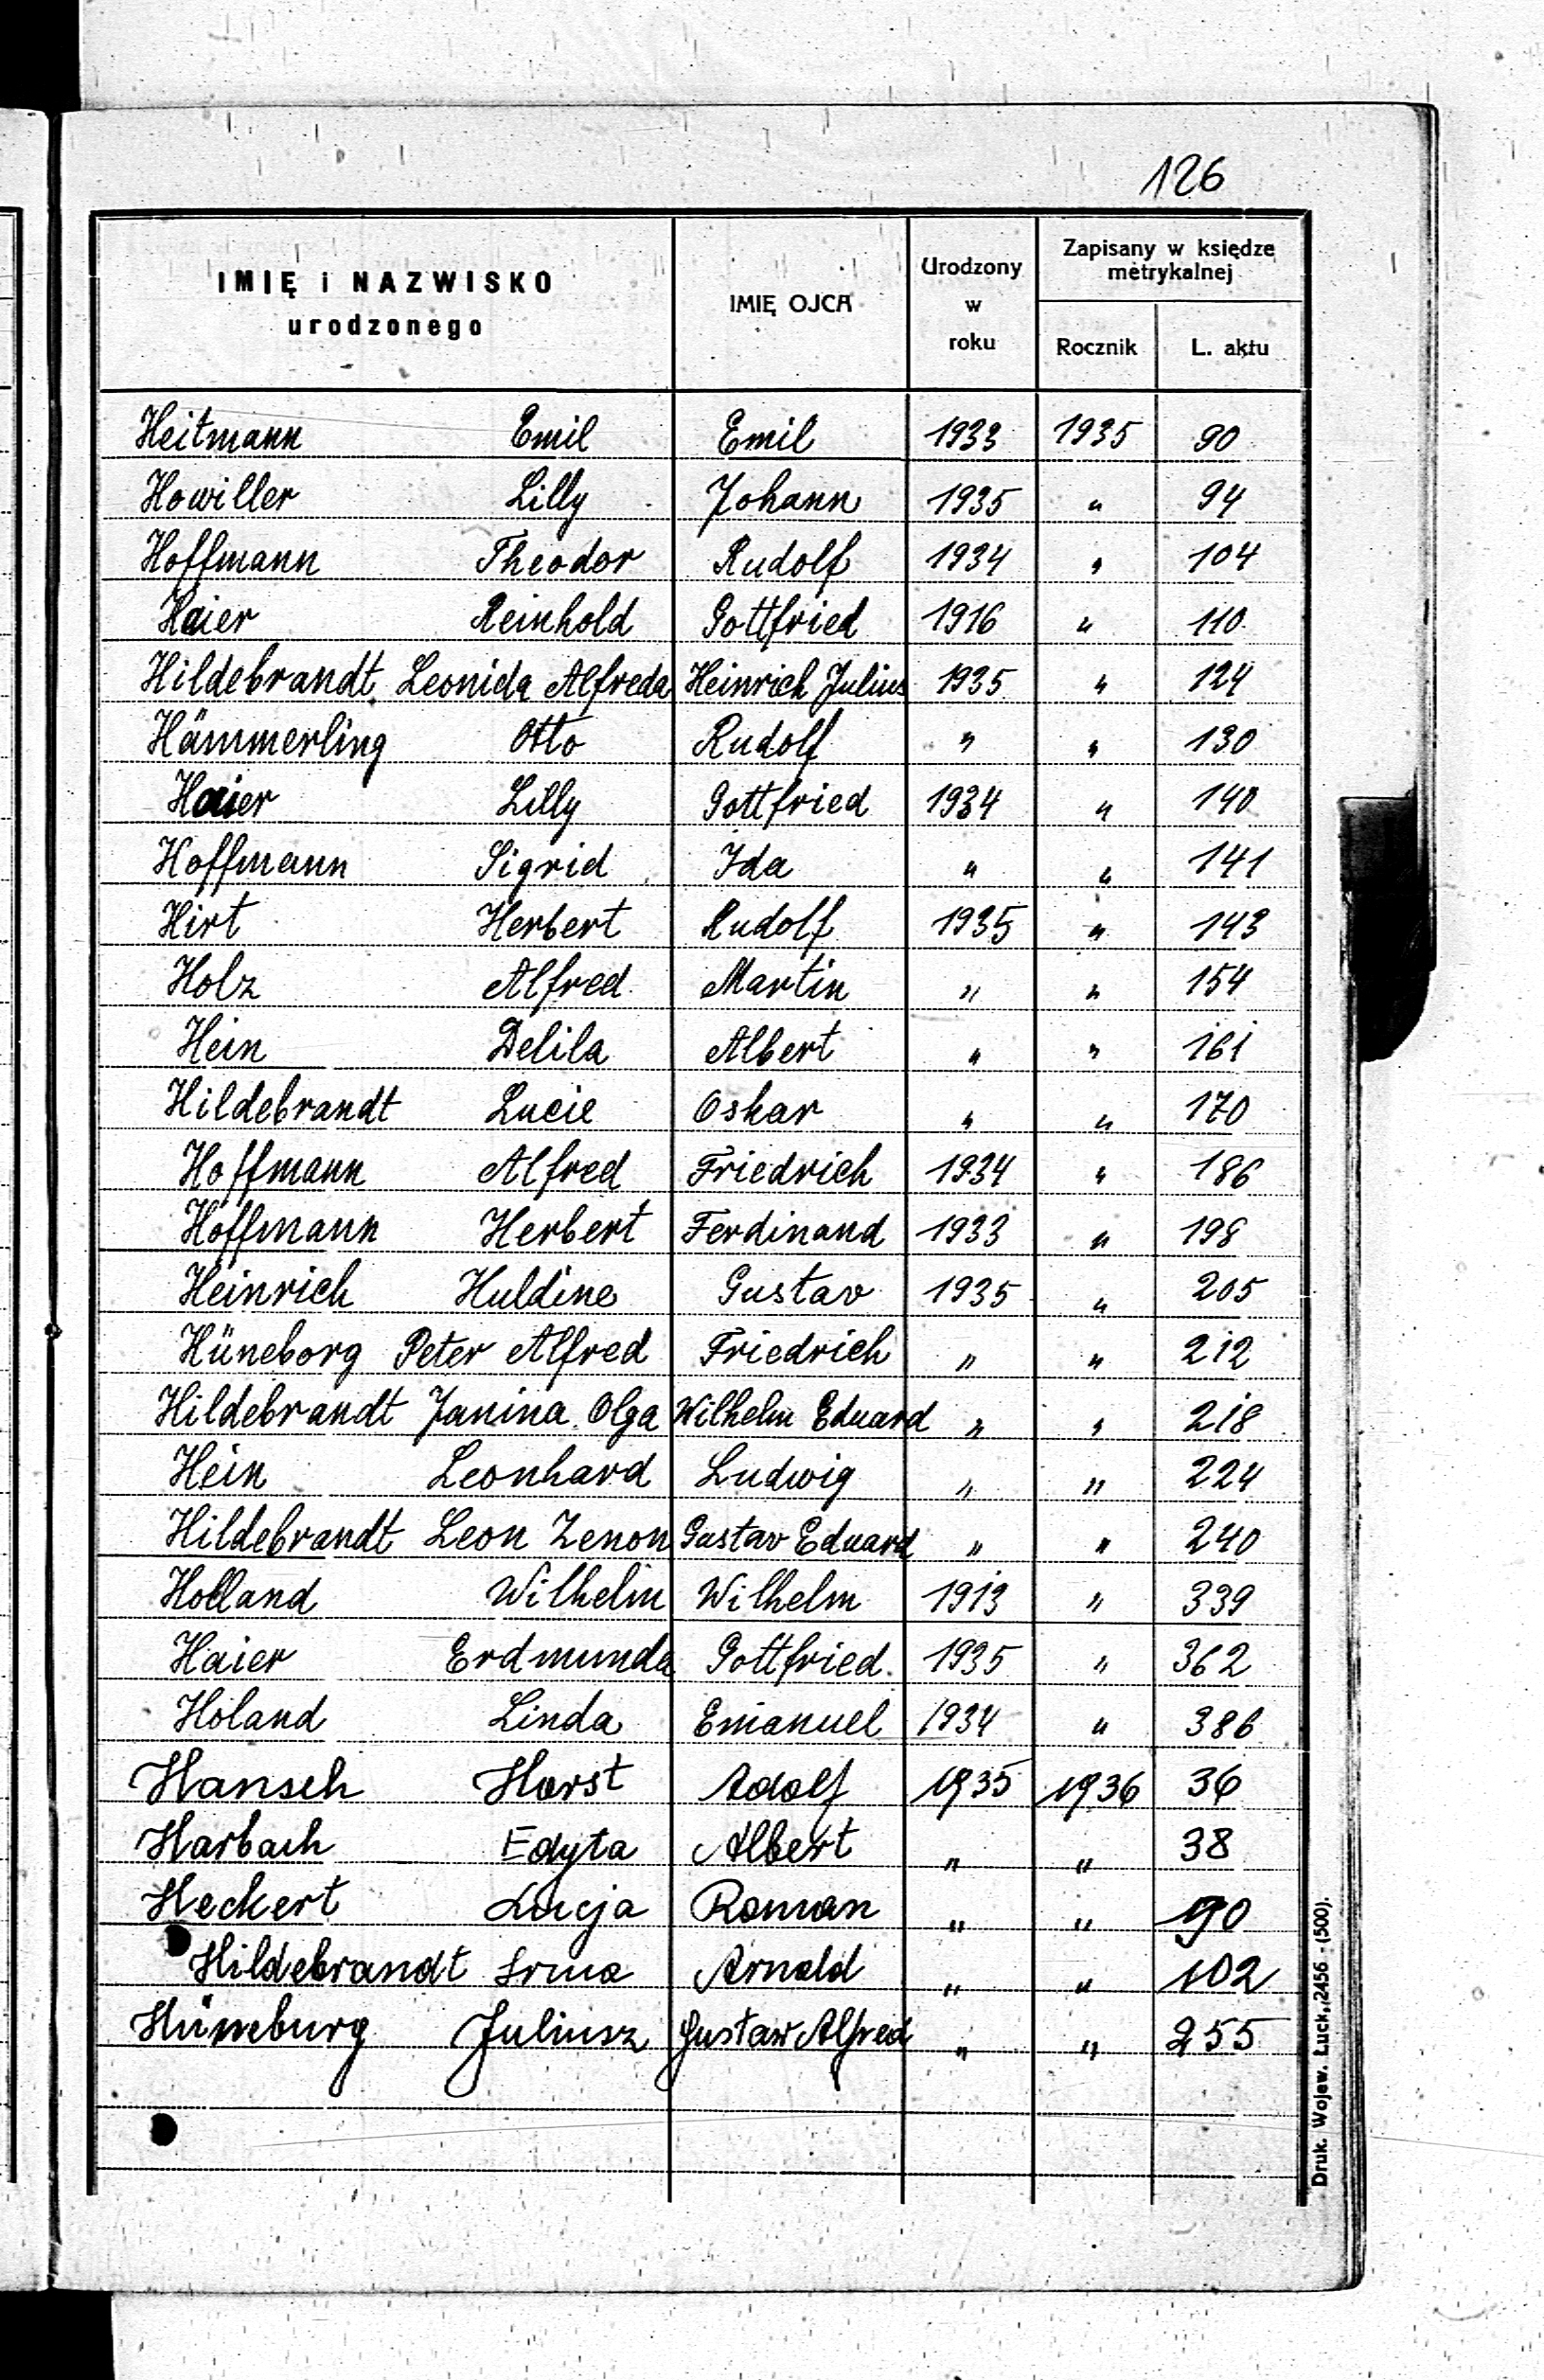 126
IMIĘ i NAZWISKO urodzonego IMIĘ OJCA Urodzony w roku Zapisany w księdze metrykalnej Rocznik L. aktu
Heitmann Emil Emil 1933 1935 90
Howiller Lilly Johann 1935 " 94
Hoffmann Theodor Rudolf 1934 " 104
Haier Reinhold Gottfried 1916 " 110
Hildebrandt Leonida Alfreda Heinrich Julius 1935 " 124
Hämmerling Otto Rudolf " " 130
Haier Lilly Gottfried 1934 " 140
Hoffmann Sigrid Ida " " 141
Hirt Herbert Rudolf 1935 " 143
Holz Alfred Martin " " 154
Hein Delila Albert " " 161
Hildebrandt Lucie Oskar " " 170
Hoffmann Alfred Friedrich 1934 " 186
Hoffmann Herbert Ferdinand 1933 " 198
Heinrich Huldine Gustav 1935 " 205
Hüneborg Peter Alfred Friedrich " " 212
Hildebrandt Janina Olga Wilhelm Eduard " " 218
Hein Leonhard Ludwig " " 224
Hildebrandt Leon Zenon Gustav Eduard " " 240
Holland Wilhelm Wilhelm 1913 " 339
Haier Erdmunda Gottfried 1935 " 362
Holand Linda Emanuel 1934 " 386
Hansch Horst Adolf 1935 1936 36
Harbach Edyta Albert " " 38
Heckert Lucja Roman " " 90
Hildebrandt Irma Arnold " " 102
Hüneburg Juliusz Gustaw Alfred " " 255
Druk. Wojew. Łuck, 2456 - (500).